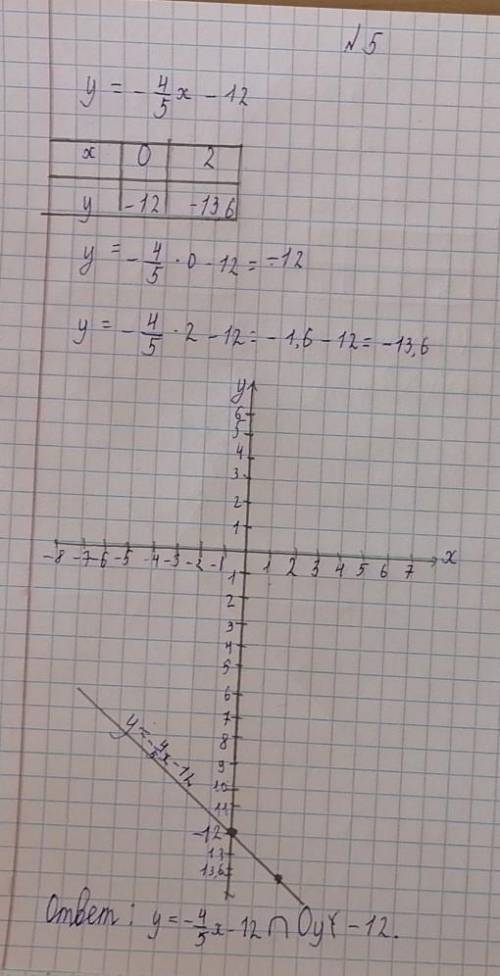 №5
y = -4/5 x - 12
x 0 2
y -12 -13,6
y = -4/5 · 0 - 12 = -12
y = -4/5 · 2 - 12 = -1,6 - 12 = -13,6
y
6
5
4
3
2
1
-8 -7 -6 -5 -4 -3 -2 -1 1 2 3 4 5 6 7 x
1
2
3
4
5
6
7
8
9
10
11
-12
13
13,6
y = -4/5 x - 12
Ответ: y = -4/5 x - 12 ∩ Oy -12.